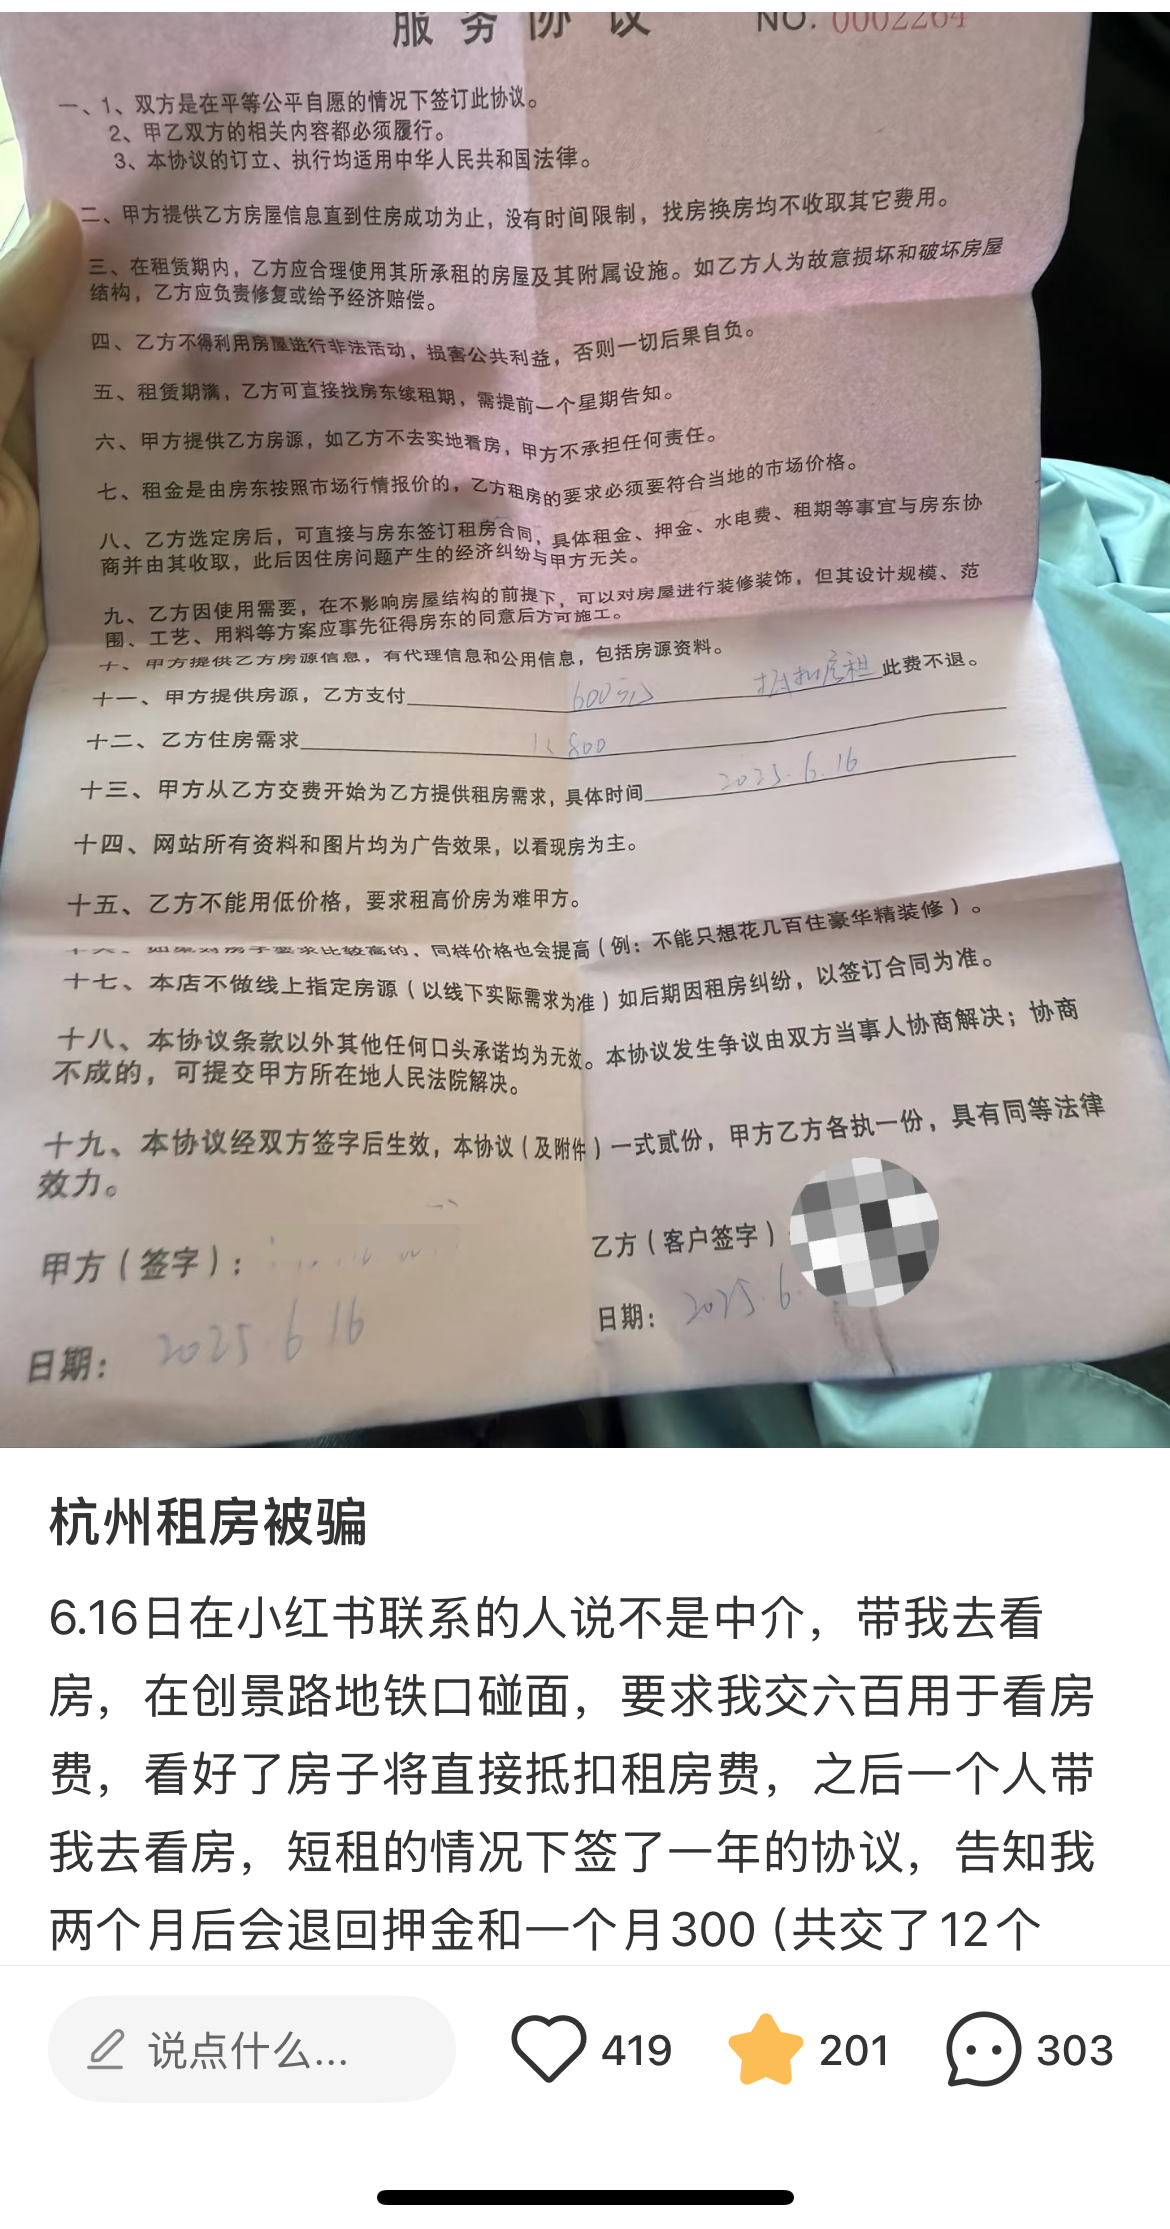 服务协议 NO. 0002264
一、1、双方是在平等公平自愿的情况下签订此协议。
2、甲乙双方的相关内容都必须履行。
3、本协议的订立、执行均适用中华人民共和国法律。
二、甲方提供乙方房屋信息直到住房成功为止，没有时间限制，找房换房均不收取其它费用。
三、在租赁期内，乙方应合理使用其所承租的房屋及其附属设施。如乙方人为故意损坏和破坏房屋
结构，乙方应负责修复或给予经济赔偿。
四、乙方不得利用房屋进行非法活动，损害公共利益，否则一切后果自负。
五、租赁期满，乙方可直接找房东续租期，需提前一个星期告知。
六、甲方提供乙方房源，如乙方不去实地看房，甲方不承担任何责任。
七、租金是由房东按照市场行情报价的，乙方租房的要求必须要符合当地的市场价格。
八、乙方选定房后，可直接与房东签订租房合同，具体租金、押金、水电费、租期等事宜与房东协
商并由其收取，此后因住房问题产生的经济纠纷与甲方无关。
九、乙方因使用需要，在不影响房屋结构的前提下，可以对房屋进行装修装饰，但其设计规模、范
围、工艺、用料等方案应事先征得房东的同意后方可施工。
十、甲方提供乙方房源信息，有代理信息和公用信息，包括房源资料。
十一、甲方提供房源，乙方支付 600元 抵扣房租 此费不退。
十二、乙方住房需求 800
十三、甲方从乙方交费开始为乙方提供租房需求，具体时间 2025.6.16
十四、网站所有资料和图片均为广告效果，以看现房为主。
十五、乙方不能用低价格，要求租高价房为难甲方。
十六、如果对房子要求比较高的，同样价格也会提高（例：不能只想花几百住豪华精装修）。
十七、本店不做线上指定房源（以线下实际需求为准）如后期因租房纠纷，以签订合同为准。
十八、本协议条款以外其他任何口头承诺均为无效。本协议发生争议由双方当事人协商解决；协商
不成的，可提交甲方所在地人民法院解决。
十九、本协议经双方签字后生效，本协议（及附件）一式贰份，甲方乙方各执一份，具有同等法律
效力。
甲方（签字）：
乙方（客户签字）
日期： 2025.6.
日期： 2025 6 16
杭州租房被骗
6.16日在小红书联系的人说不是中介，带我去看
房，在创景路地铁口碰面，要求我交六百用于看房
费，看好了房子将直接抵扣租房费，之后一个人带
我去看房，短租的情况下签了一年的协议，告知我
两个月后会退回押金和一个月300（共交了12个
说点什么... 419 201 303